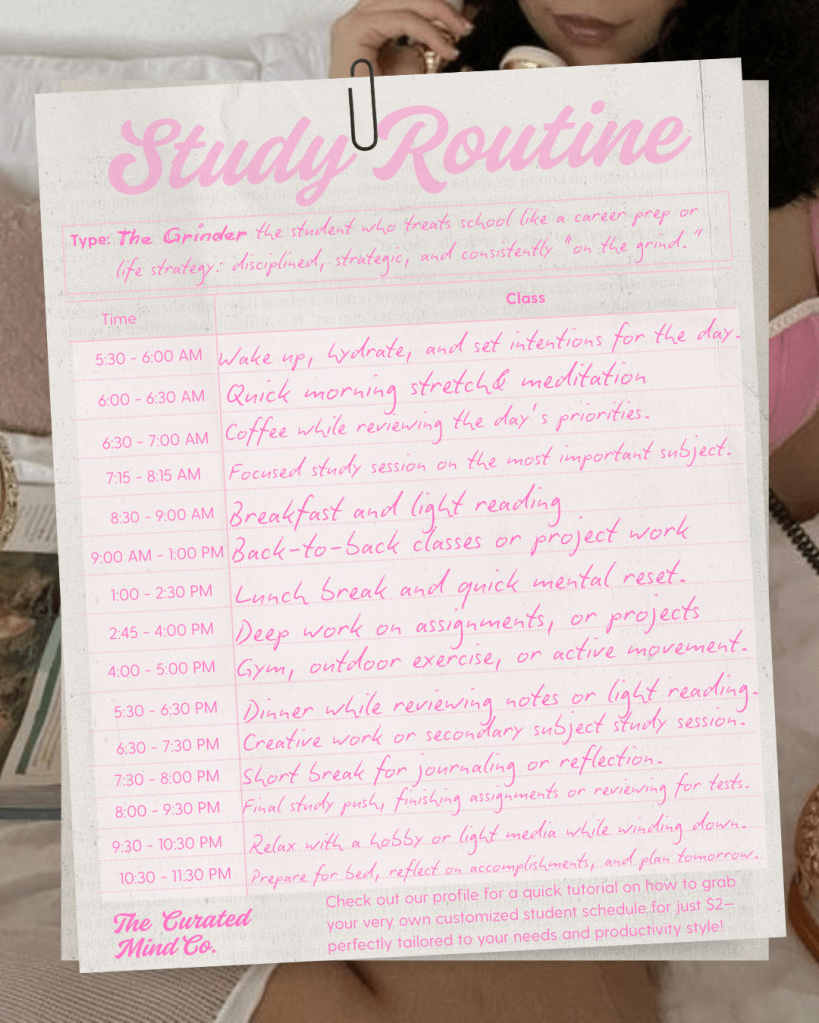 Study Routine
Type: The Grinder the student who treats school like a career prep or
life strategy: disciplined, strategic, and consistently "on the grind."
Time Class
5:30 - 6:00 AM Wake up, hydrate, and set intentions for the day.
6:00 - 6:30 AM Quick morning stretch& meditation
6:30 - 7:00 AM Coffee while reviewing the day's priorities.
7:15 - 8:15 AM Focused study session on the most important subject.
8:30 - 9:00 AM Breakfast and light reading
9:00 AM - 1:00 PM Back-to-back classes or project work
1:00 - 2:30 PM Lunch break and quick mental reset.
2:45 - 4:00 PM Deep work on assignments, or projects
4:00 - 5:00 PM Gym, outdoor exercise, or active movement.
5:30 - 6:30 PM Dinner while reviewing notes or light reading.
6:30 - 7:30 PM Creative work or secondary subject study session.
7:30 - 8:00 PM Short break for journaling or reflection.
8:00 - 9:30 PM Final study push, finishing assignments or reviewing for tests.
9:30 - 10:30 PM Relax with a hobby or light media while winding down.
10:30 - 11:30 PM Prepare for bed, reflect on accomplishments, and plan tomorrow.
The Curated
Mind Co.
Check out our profile for a quick tutorial on how to grab
your very own customized student schedule,for just $2—
perfectly tailored to your needs and productivity style!